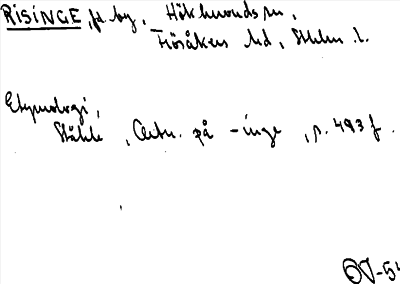 RISINGE, f. by, Hökhuvuds sn,
Frösåkers hd, Sthlms l.
Etymologi,
Ståhle, Ortn. på -inge, s. 493 f.